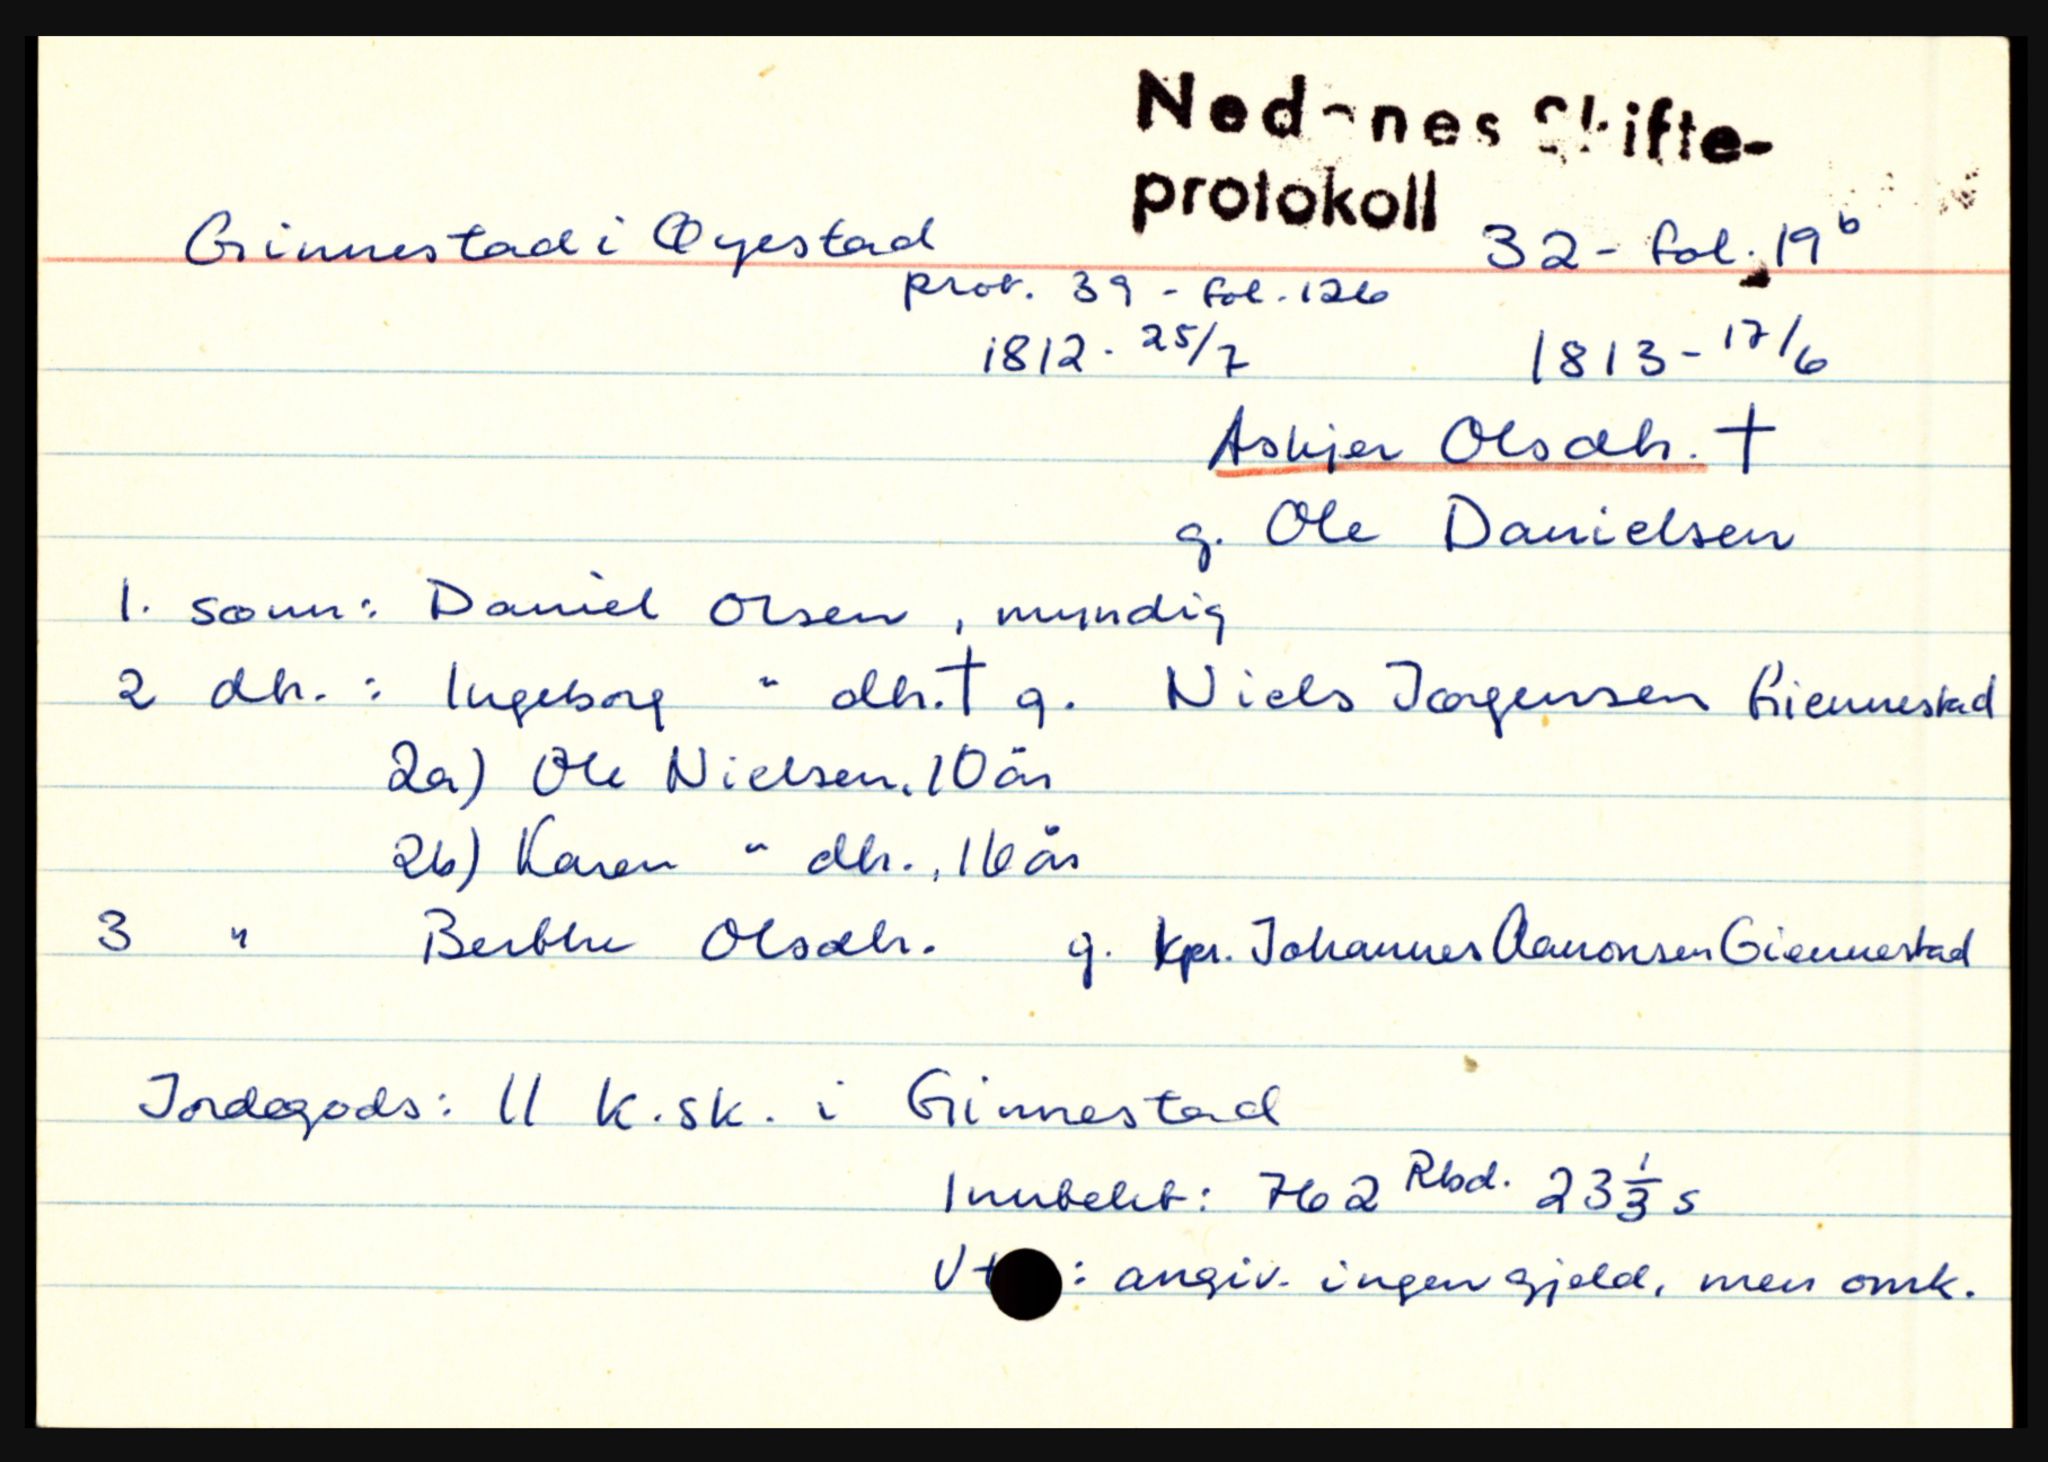 Nedenes Skifte-
protokoll
Ginnestad i Øyestad 32 - fol. 19b
prot. 39 - fol. 126
1812 - 25/7 1813 - 17/6
Askjer Olsdtr. †
g. Ole Danielsen
1. sønn: Daniel Olsen, myndig
2 dtr. : Ingeborg " dtr. † g. Niels Jørgensen Giennestad
2a) Ole Nielsen, 10 år
2b) Karen " dtr., 16 år
3 " Berthe Olsdtr. g. kpr. Johannes Aanonsen Giennestad
Jordegods: 11 k.sk. i Ginnestad
Inntekt: 762 Rbd. 23 1/3 s
Ut : angiv. ingen gjeld, men omk.